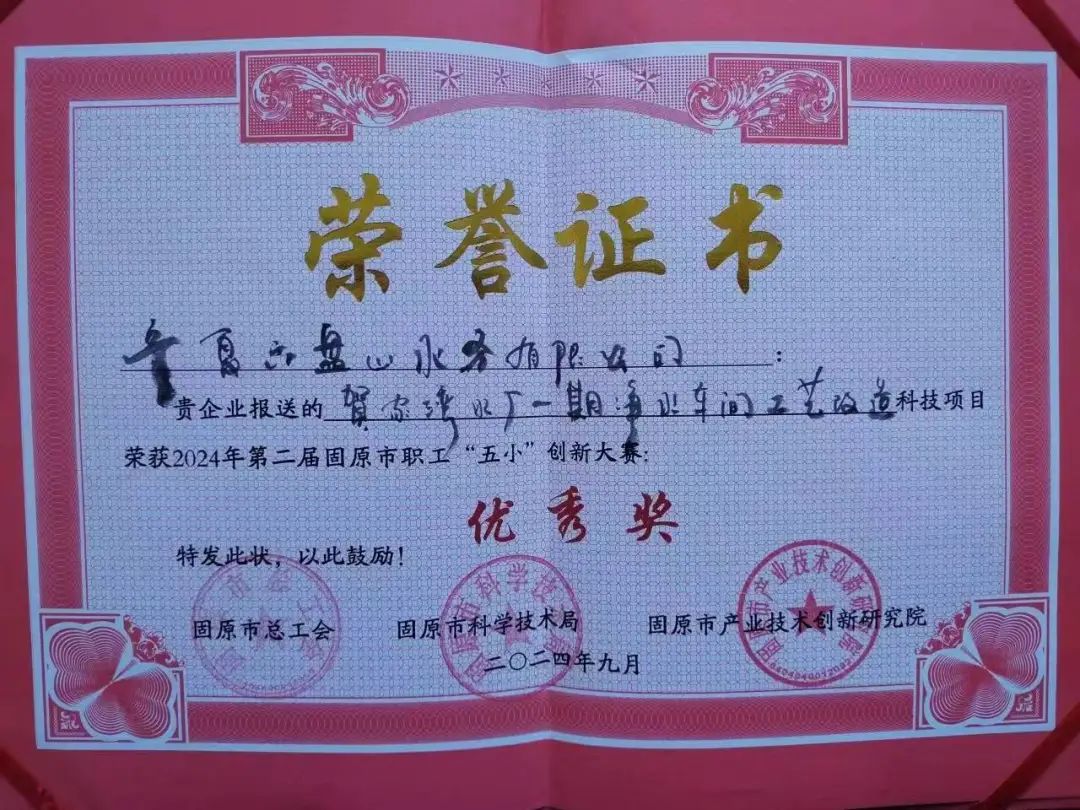 荣誉证书
宁夏六盘山水务有限公司：
贵企业报送的贺家湾水厂一期净水车间工艺改造科技项目
荣获2024年第二届固原市职工“五小”创新大赛：
优秀奖
特发此状，以此鼓励！
固原市总工会 固原市科学技术局 固原市产业技术创新研究院
二〇二四年九月